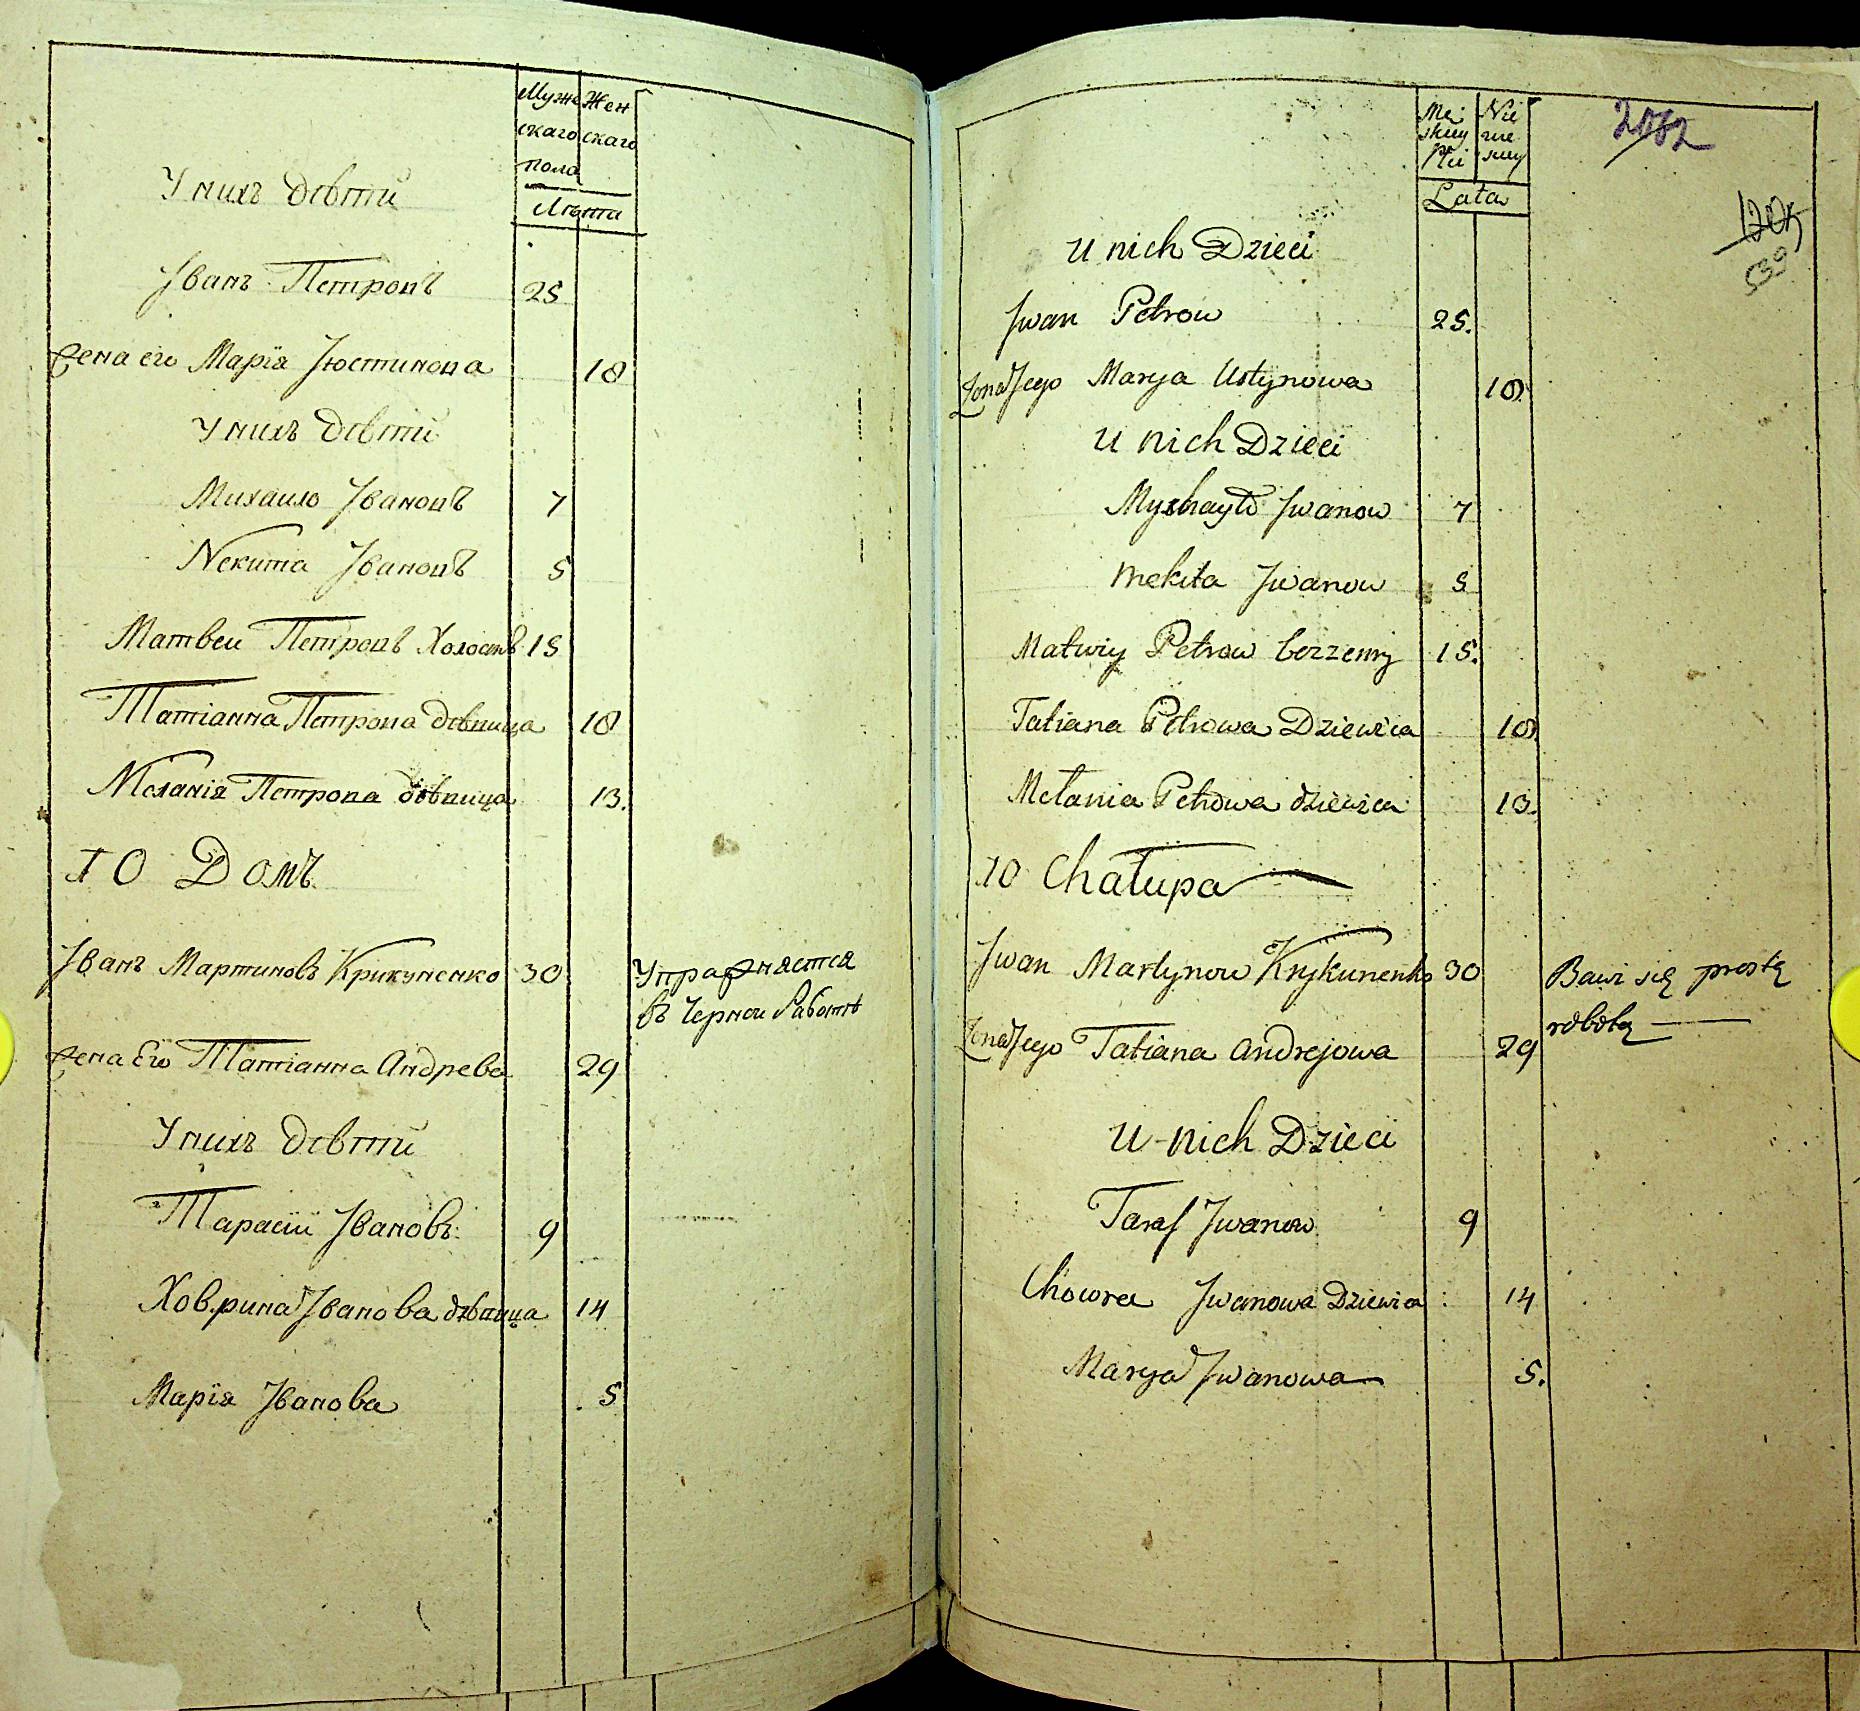 Муже Жен
скаго скаго
пола
Лѣта
У нихъ дѣтіи
Іванъ Петровъ 25
Жена его Марія Іюстинова 18
У нихъ дѣтіи
Михаило Івановъ 7
Некита Івановъ 5
Матвеи Петровъ Холостъ 15
Татіанна Петрова дѣвица 18
Меланія Петрова дѣвица 13.
10 Домъ
Іванъ Мартиновъ Крикуненко 30 Упражняется
въ Черной Работѣ
Жена Его Татіанна Андрева 29
У нихъ дѣтіи
Тарасіи Івановъ 9
Хов.рина Іванова дѣвица 14
Марія Іванова 5
2082
539
Mę Nie
skiey wie
Płci sciey
Lata
U nich Dzieci
Jwan Petrow 25.
Żona Jego Marya Ustynowa 18.
U nich Dzieci
Mychayło Jwanow 7
Mekita Jwanow 5
Matwiy Petrow bezzenny 15.
Tatiana Petrowa Dziewica 18.
Mełania Petrowa dziewica 13.
10 Chałupa
Jwan Martynow Krykunenko 30 Bawi się prostą
robotą
Żona Jego Tatiana Andrejowa 29
U nich Dzieci
Taras Jwanow 9
Chowra Jwanowa Dziewica 14
Marya Jwanowa 5.